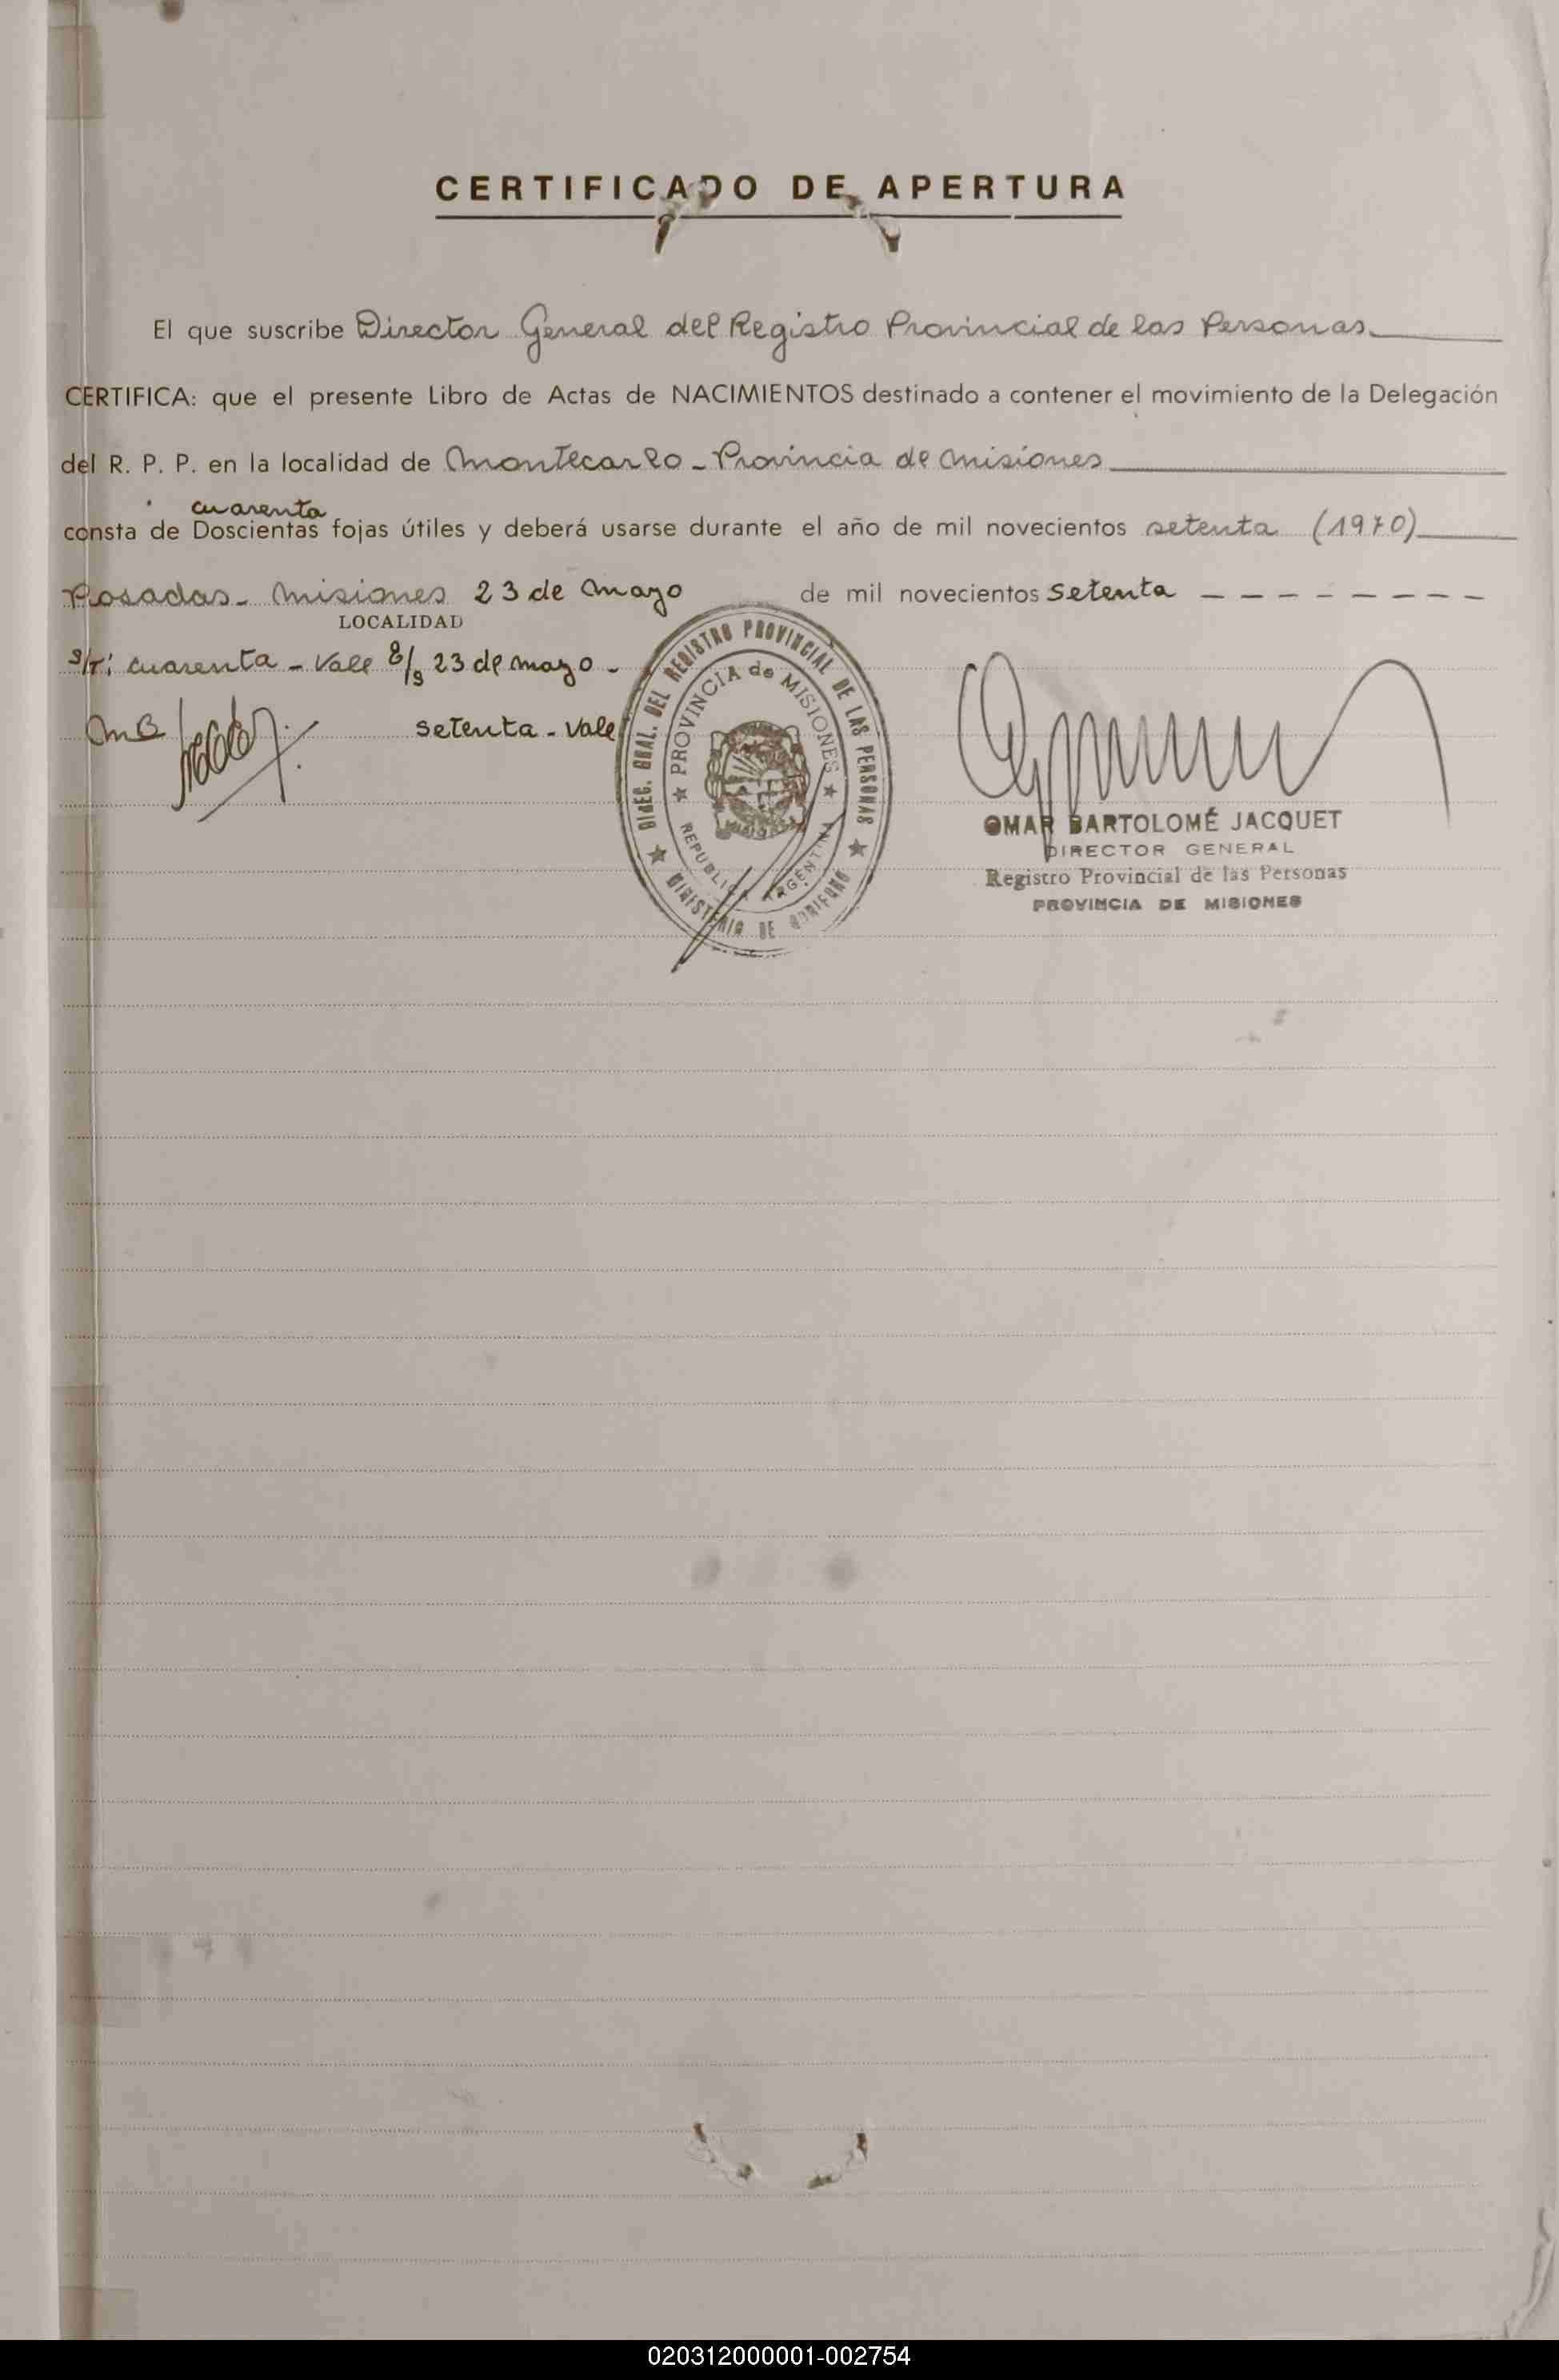 CERTIFICADO DE APERTURA
El que suscribe Director General del Registro Provincial de las Personas
CERTIFICA: que el presente Libro de Actas de NACIMIENTOS destinado a contener el movimiento de la Delegación
del R. P. P. en la localidad de Montecarlo - Provincia de Misiones
cuarenta
consta de Doscientas fojas útiles y deberá usarse durante el año de mil novecientos setenta (1970)
Posadas - Misiones 23 de Mayo de mil novecientos setenta - - - - - - - -
LOCALIDAD
S/T: cuarenta - Vale 23 de mayo -
setenta - Vale
DIREC. GRAL. DEL REGISTRO PROVINCIAL DE LAS PERSONAS
PROVINCIA de MISIONES
REPUBLICA ARGENTINA
MINISTERIO DE GOBIERNO
OMAR BARTOLOMÉ JACQUET
DIRECTOR GENERAL
Registro Provincial de las Personas
PROVINCIA DE MISIONES
020312000001-002754